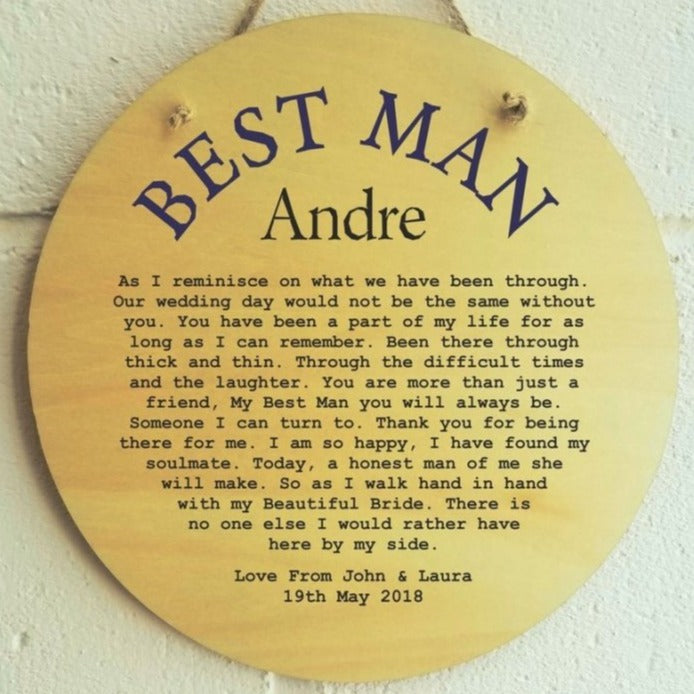 BEST MAN
Andre
As I reminisce on what we have been through.
Our wedding day would not be the same without
you. You have been a part of my life for as
long as I can remember. Been there through
thick and thin. Through the difficult times
and the laughter. You are more than just a
friend, My Best Man you will always be.
Someone I can turn to. Thank you for being
there for me. I am so happy, I have found my
soulmate. Today, a honest man of me she
will make. So as I walk hand in hand
with my Beautiful Bride. There is
no one else I would rather have
here by my side.
Love From John & Laura
19th May 2018